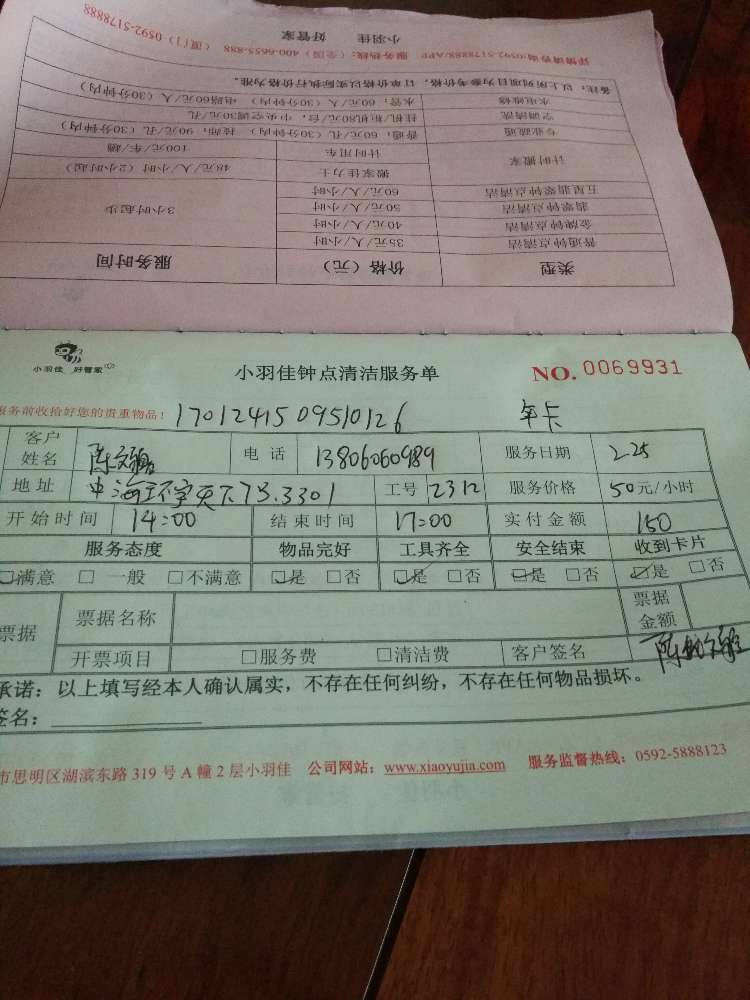 小羽佳 好管家
详情请咨询:0592-5178888/APP 服务热线:(全国)400-6655-888 (厦门)0592-5178888
备注:以上所列项目为参考价格,订单价格以实际执行价格为准。
水电维修 水管,60元/人(30分钟内) 电路60元/人(30分钟内)
空调清洗 挂机/柜机80元/台,中央空调30元/孔
专业疏通 普通,60元/孔(30分钟内) 拉师,90元/孔(30分钟内)
计时搬家 计时用车 100元/车/趟
搬家佳力士 48元/人/小时(2小时起)
五星翡翠钟点清洁 60元/人/小时
翡翠钟点清洁 50元/人/小时 3小时起步
金牌钟点清洁 40元/人/小时
普通钟点清洁 35元/人/小时
类型 价格(元) 服务时间
小羽佳 好管家
小羽佳钟点清洁服务单 NO. 0069931
服务前收拾好您的贵重物品! 1701241509510126 年卡
客户姓名 陈 电话 13806060989 服务日期 2.25
地址 中海环宇天下7B.3301 工号 2312 服务价格 50元/小时
开始时间 14:00 结束时间 17:00 实付金额 150
服务态度 物品完好 工具齐全 安全结束 收到卡片
☑满意 □一般 □不满意 ☑是 □否 ☑是 □否 ☑是 □否 ☑是 □否
票据 票据名称 票据金额
开票项目 □服务费 □清洁费 客户签名 陈
承诺:以上填写经本人确认属实,不存在任何纠纷,不存在任何物品损坏。
签名:
市思明区湖滨东路319号A幢2层小羽佳 公司网站:www.xiaoyujia.com 服务监督热线:0592-5888123